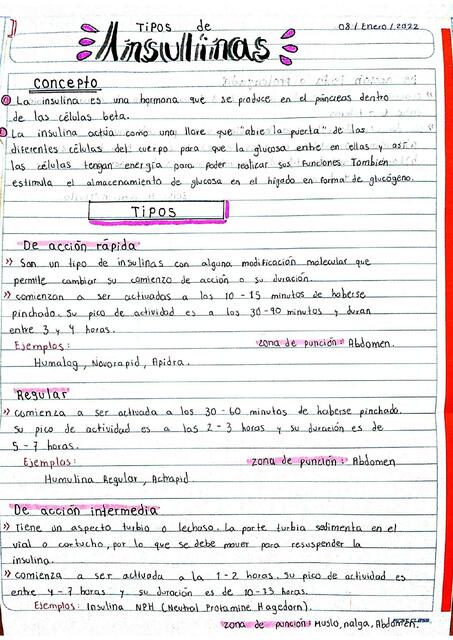 08 / Enero / 2022
Tipos de
Insulinas
Concepto
La insulina es una hormona que se produce en el páncreas dentro
de las células beta.
La insulina actúa como una llave que "abre la puerta" de las
diferentes células del cuerpo para que la glucosa entre en ellas y así
las células tengan energía para poder realizar sus funciones. También
estimula el almacenamiento de glucosa en el hígado en forma de glucógeno.
TIPOS
De acción rápida
» Son un tipo de insulinas con alguna modificación molecular que
permite cambiar su comienzo de acción o su duración.
» comienzan a ser activadas a los 10 - 15 minutos de haberse
pinchado. Su pico de actividad es a los 30-90 minutos y duran
entre 3 y 4 horas.
Ejemplos: zona de punción: Abdomen.
Humalog, Novorapid, Apidra.
Regular
» comienza a ser activada a los 30 - 60 minutos de haberse pinchado.
Su pico de actividad es a las 2 - 3 horas y su duración es de
5 - 7 horas.
Ejemplos: zona de punción: Abdomen
Humulina Regular, Actrapid.
De acción intermedia
» Tiene un aspecto turbio o lechoso. La parte turbia sedimenta en el
vial o cartucho, por lo que se debe mover para resuspender la
insulina.
» comienza a ser activada a la 1 - 2 horas. Su pico de actividad es
entre 4 - 7 horas y su duración es de 10 - 13 horas.
Ejemplos: Insulina NPH (Neutral Protamine Hagedorn).
zona de punción: Muslo, nalga, Abdomen.